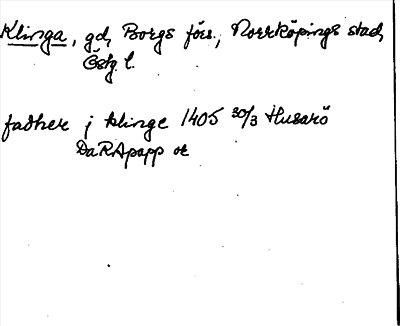 Klinga, gd, Borgs förs., Norrköpings stad,
Östg l.
fadher j klinge 1405 30/3 Husarö
DaRApapp or